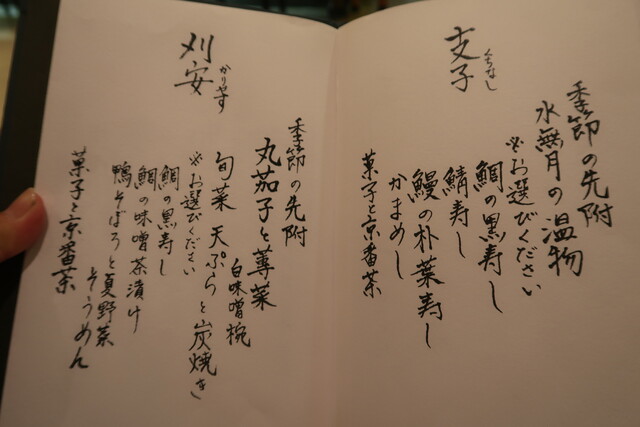 支子
くちなし
季節の先附
水無月の温物
※お選びください
鯛の黒寿し
鯖寿し
鰻の朴葉寿し
かまめし
菓子と京番茶
刈安
かりやす
季節の先附
丸茄子と蓴菜
白味噌椀
旬菜 天ぷらと炭焼き
※お選びください
鯛の黒寿し
鯛の味噌茶漬け
鴨そぼろと夏野菜
そうめん
菓子と京番茶